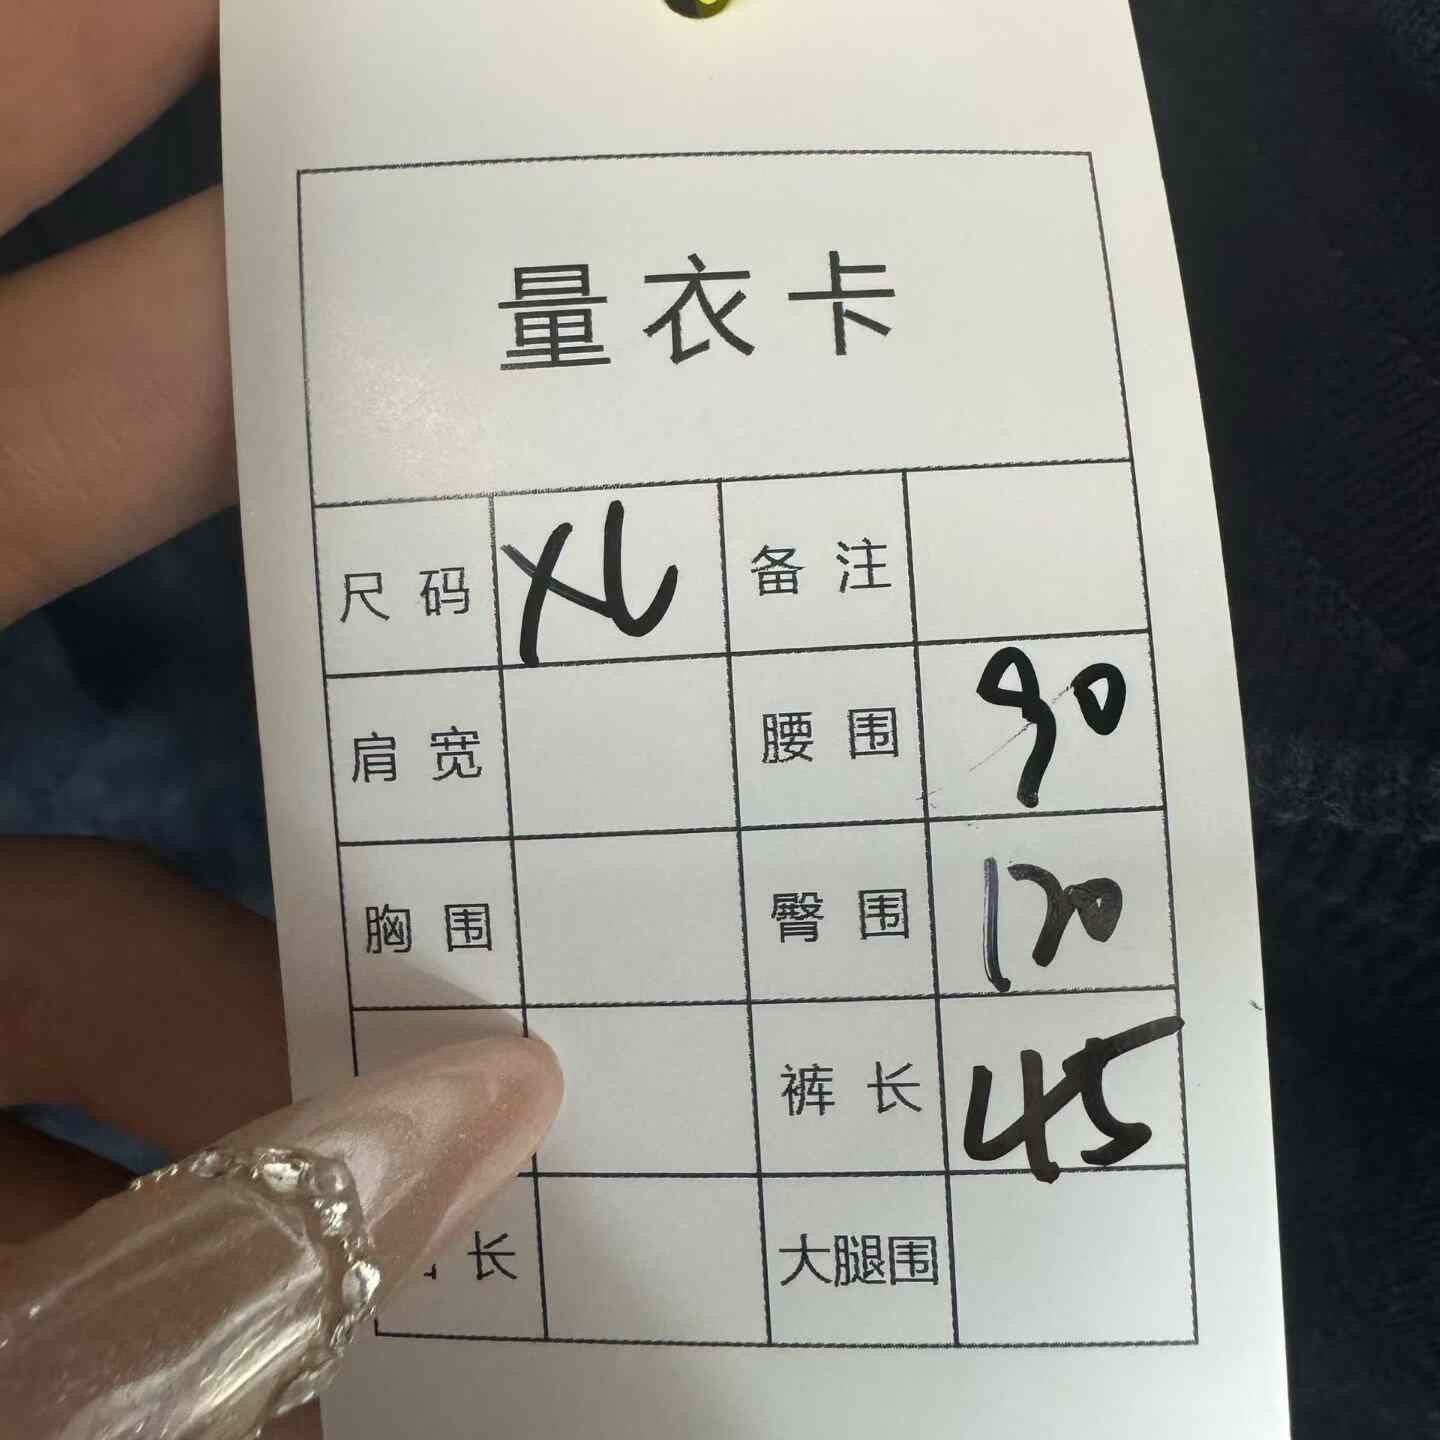 量衣卡
尺码 XL 备注
肩宽 腰围 90
胸围 臀围 120
裤长 45
长 大腿围